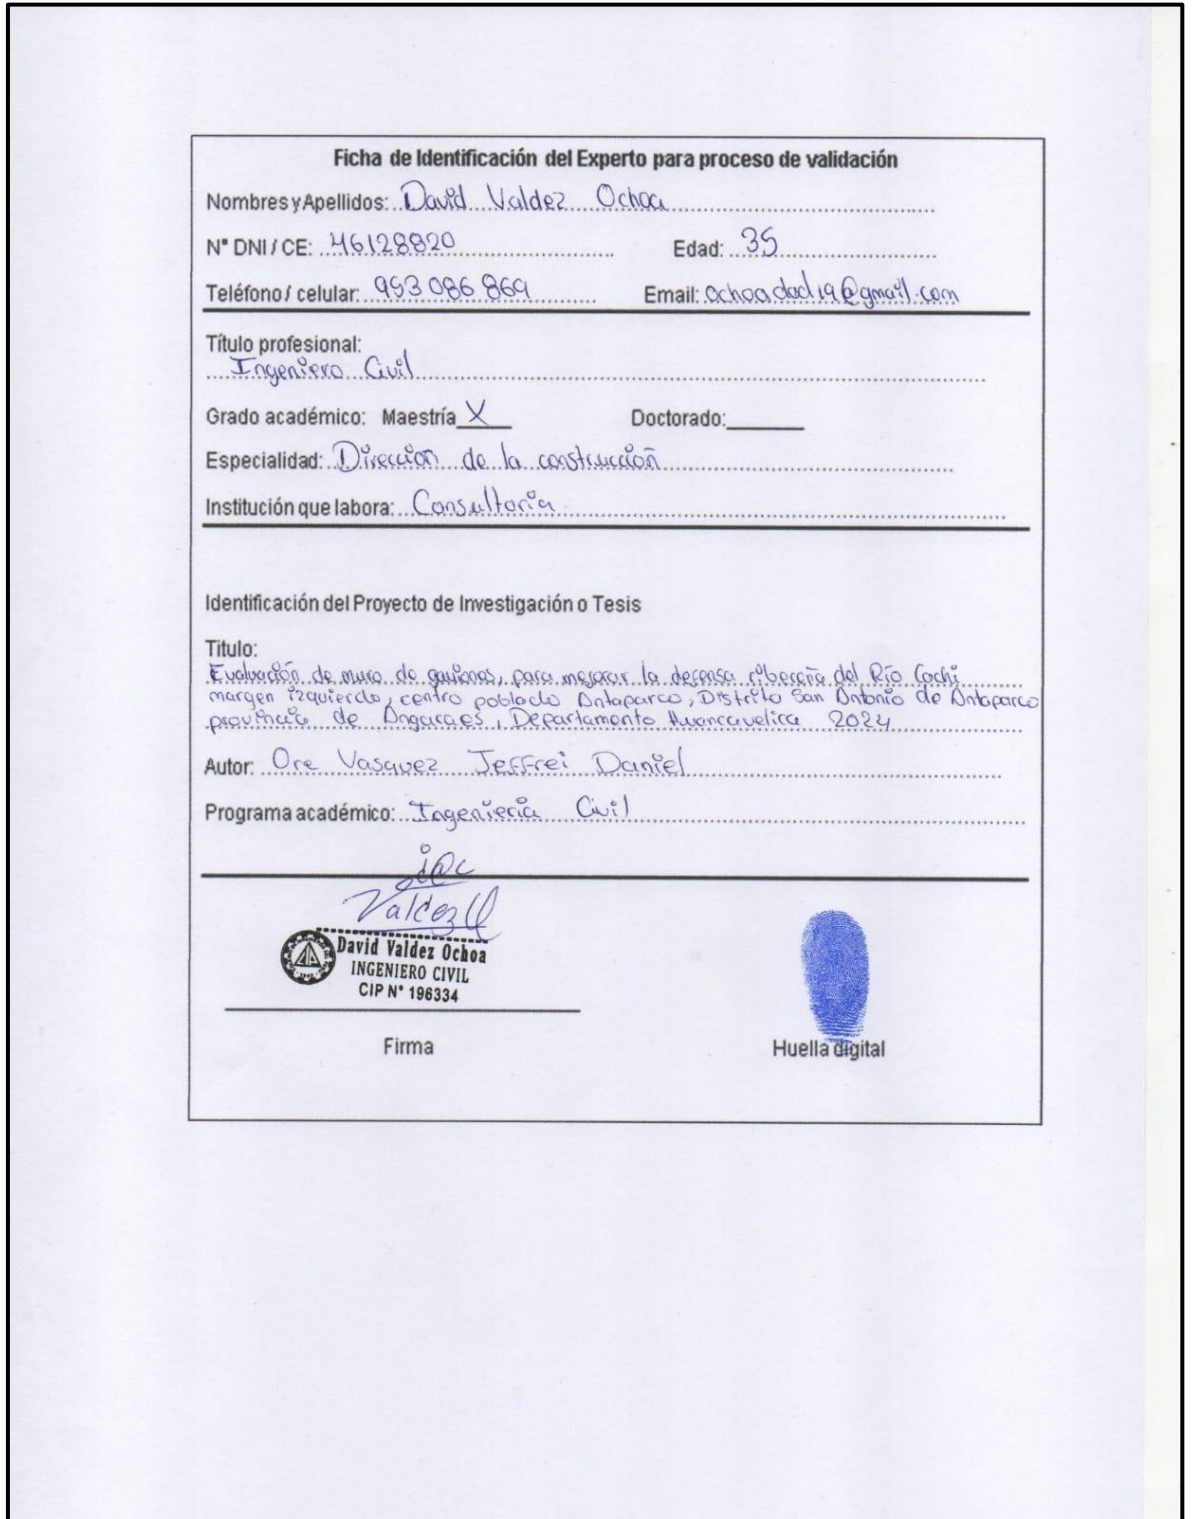 Ficha de Identificación del Experto para proceso de validación
Nombres y Apellidos: David Valdez Ochoa
N° DNI / CE: 46128820 Edad: 35
Teléfono / celular: 953 086 869 Email: ochoadad19@gmail.com
Título profesional:
Ingeniero Civil
Grado académico: Maestría X Doctorado:
Especialidad: Dirección de la construcción
Institución que labora: Consultoria
Identificación del Proyecto de Investigación o Tesis
Titulo:
Evaluación de muro de gaviones, para mejorar la defensa ribereña del Río Cachi
margen izquierdo, centro poblado Antaparco, Distrito San Antonio de Antaparco
provincia de Angaraes, Departamento Huancavelica 2024
Autor: Ore Vasquez Jeffrei Daniel
Programa académico: Ingeniería Civil
Valdez
David Valdez Ochoa
INGENIERO CIVIL
CIP N° 196334
Firma Huella digital